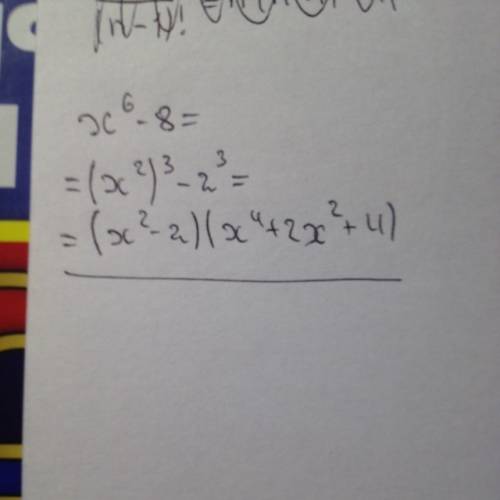 x⁶ - 8 =
= (x²)³ - 2³ =
= (x² - 2)(x⁴ + 2x² + 4)